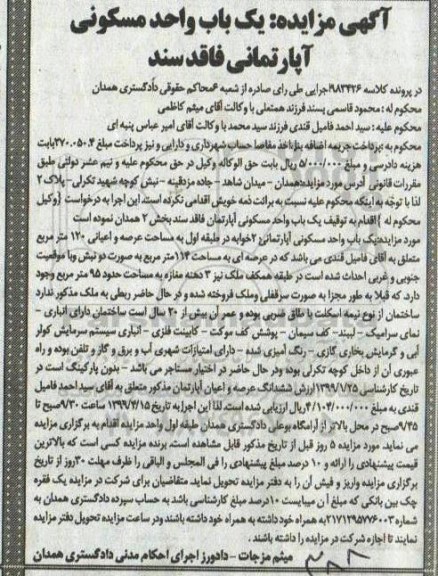 آگهی مزایده: یک باب واحد مسکونی
آپارتمانی فاقد سند
در پرونده کلاسه ۹۸۲۴۲۶اجرایی طی رای صادره از شعبه ۶محاکم حقوقی دادگستری همدان
محکوم له : محمود قاسمی پسند فرزند همتعلی با وکالت آقای میثم کاظمی
محکوم علیه : سید احمد فامیل قندی فرزند سید محمد با وکالت آقای امیر عباس پنبه ای
محکوم به پرداخت جریمه اضافه بنا و اخذ مفاصا حساب شهرداری و دارایی و نیز پرداخت مبلغ ۲۷۰.۰۵۰.۴بابت
هزینه دادرسی و مبلغ ۵/۰۰۰/۰۰۰ ریال بابت حق الوکاله وکیل در حق محکوم علیه و نیم عشر دولتی طبق
مقررات قانونی آدرس مورد مزایده:همدان - میدان شاهد - جاده مزدقینه - نبش کوچه شهید تکرلی- پلاک ۲
لذا با توجه به اینکه محکوم علیه نسبت به برائت ذمه خویش اقدامی نکرده است، این اجرا به درخواست (وکیل
محکوم له ) اقدام به توقیف یک باب واحد مسکونی آپارتمان فاقد سند بخش ۲ همدان نموده است
مورد مزایده:یک باب واحد مسکونی آپارتمانی ۲خوابه در طبقه اول به مساحت عرصه و اعیانی ۱۲۰ متر مربع
متعلق به آقای فامیل قندی می باشد که در عرصه ای به مساحت ۱۱۴متر مربع به صورت دو نبش وبا موقعیت
جنوبی و غربی احداث شده است در طبقه همکف ملک نیز ۳ دهنه مغازه به مساحت حدود ۹۵ متر مربع وجود
دارد، که قبلا به طور مجزا به صورت سرقفلی وملک فروخته شده و در حال حاضر ربطی به ملک مذکور ندارد
ساختمان از نوع نیمه اسکلت با طاق ضربی بوده و عمر آن بیش از ۲۰ سال است ساختمان دارای انباری -
نمای سرامیک - لیبند - کف سیمان - پوشش کف موکت - کابینت فلزی - انباری سیستم سرمایش کولر
آبی و گرمایش بخاری گازی - رنگ آمیزی شده - دارای امتیازات شهری آب و برق و گاز و تلفن بوده و راه
عبوری آن از داخل کوچه تکرلی بوده ودر حال حاضر در اختیار مستاجر می باشد - بدون پارکینگ است در
تاریخ کارشناسی ۱۳۹۹/۱/۲۵ ارزش ششدانگ عرصه و اعیان آپارتمان مذکور متعلق به آقای سید احمد فامیل
قندی به مبلغ ۴/۱۰۴/۰۰۰/۰۰۰ریال ارزیابی شده است، لذا این اجرا به تاریخ ۱۳۹۹/۴/۱۵ ساعت ۹/۳۰صبح تا
۹/۴۵صبح در محل بالاتر از آرامگاه بوعلی دادگستری همدان طبقه اول واحد مزایده اقدام به برگزاری مزایده
می نماید. مورد مزایده ۵ روز قبل از تاریخ مذکور قابل مشاهده است. برنده مزایده کسی است که بالاترین
قیمت پیشنهادی را ارائه و ۱۰ درصد مبلغ پیشنهادی را فی المجلس و الباقی را ظرف مهلت ۳۰روز از تاریخ
برگزاری مزایده واریز و فیش آن را به دفتر مزایده تحویل نماید. متقاضیان برای شرکت در مزایده یک فقره
چک بین بانکی که مبلغ آ ن میبایست ۱۰درصد مبلغ کارشناسی باشد به حساب سپرده دادگستری همدان به
شماره ۲۱۷۱۲۹۵۷۷۶۰۰۳به همراه خود داشته به همراه خود داشته باشند ودر ساعت مزایده تحویل دفتر مزایده
نمایند تا اجازه شرکت در مزایده را داشته باشند .
میثم مزجات - دادورز اجرای احکام مدنی دادگستری همدان